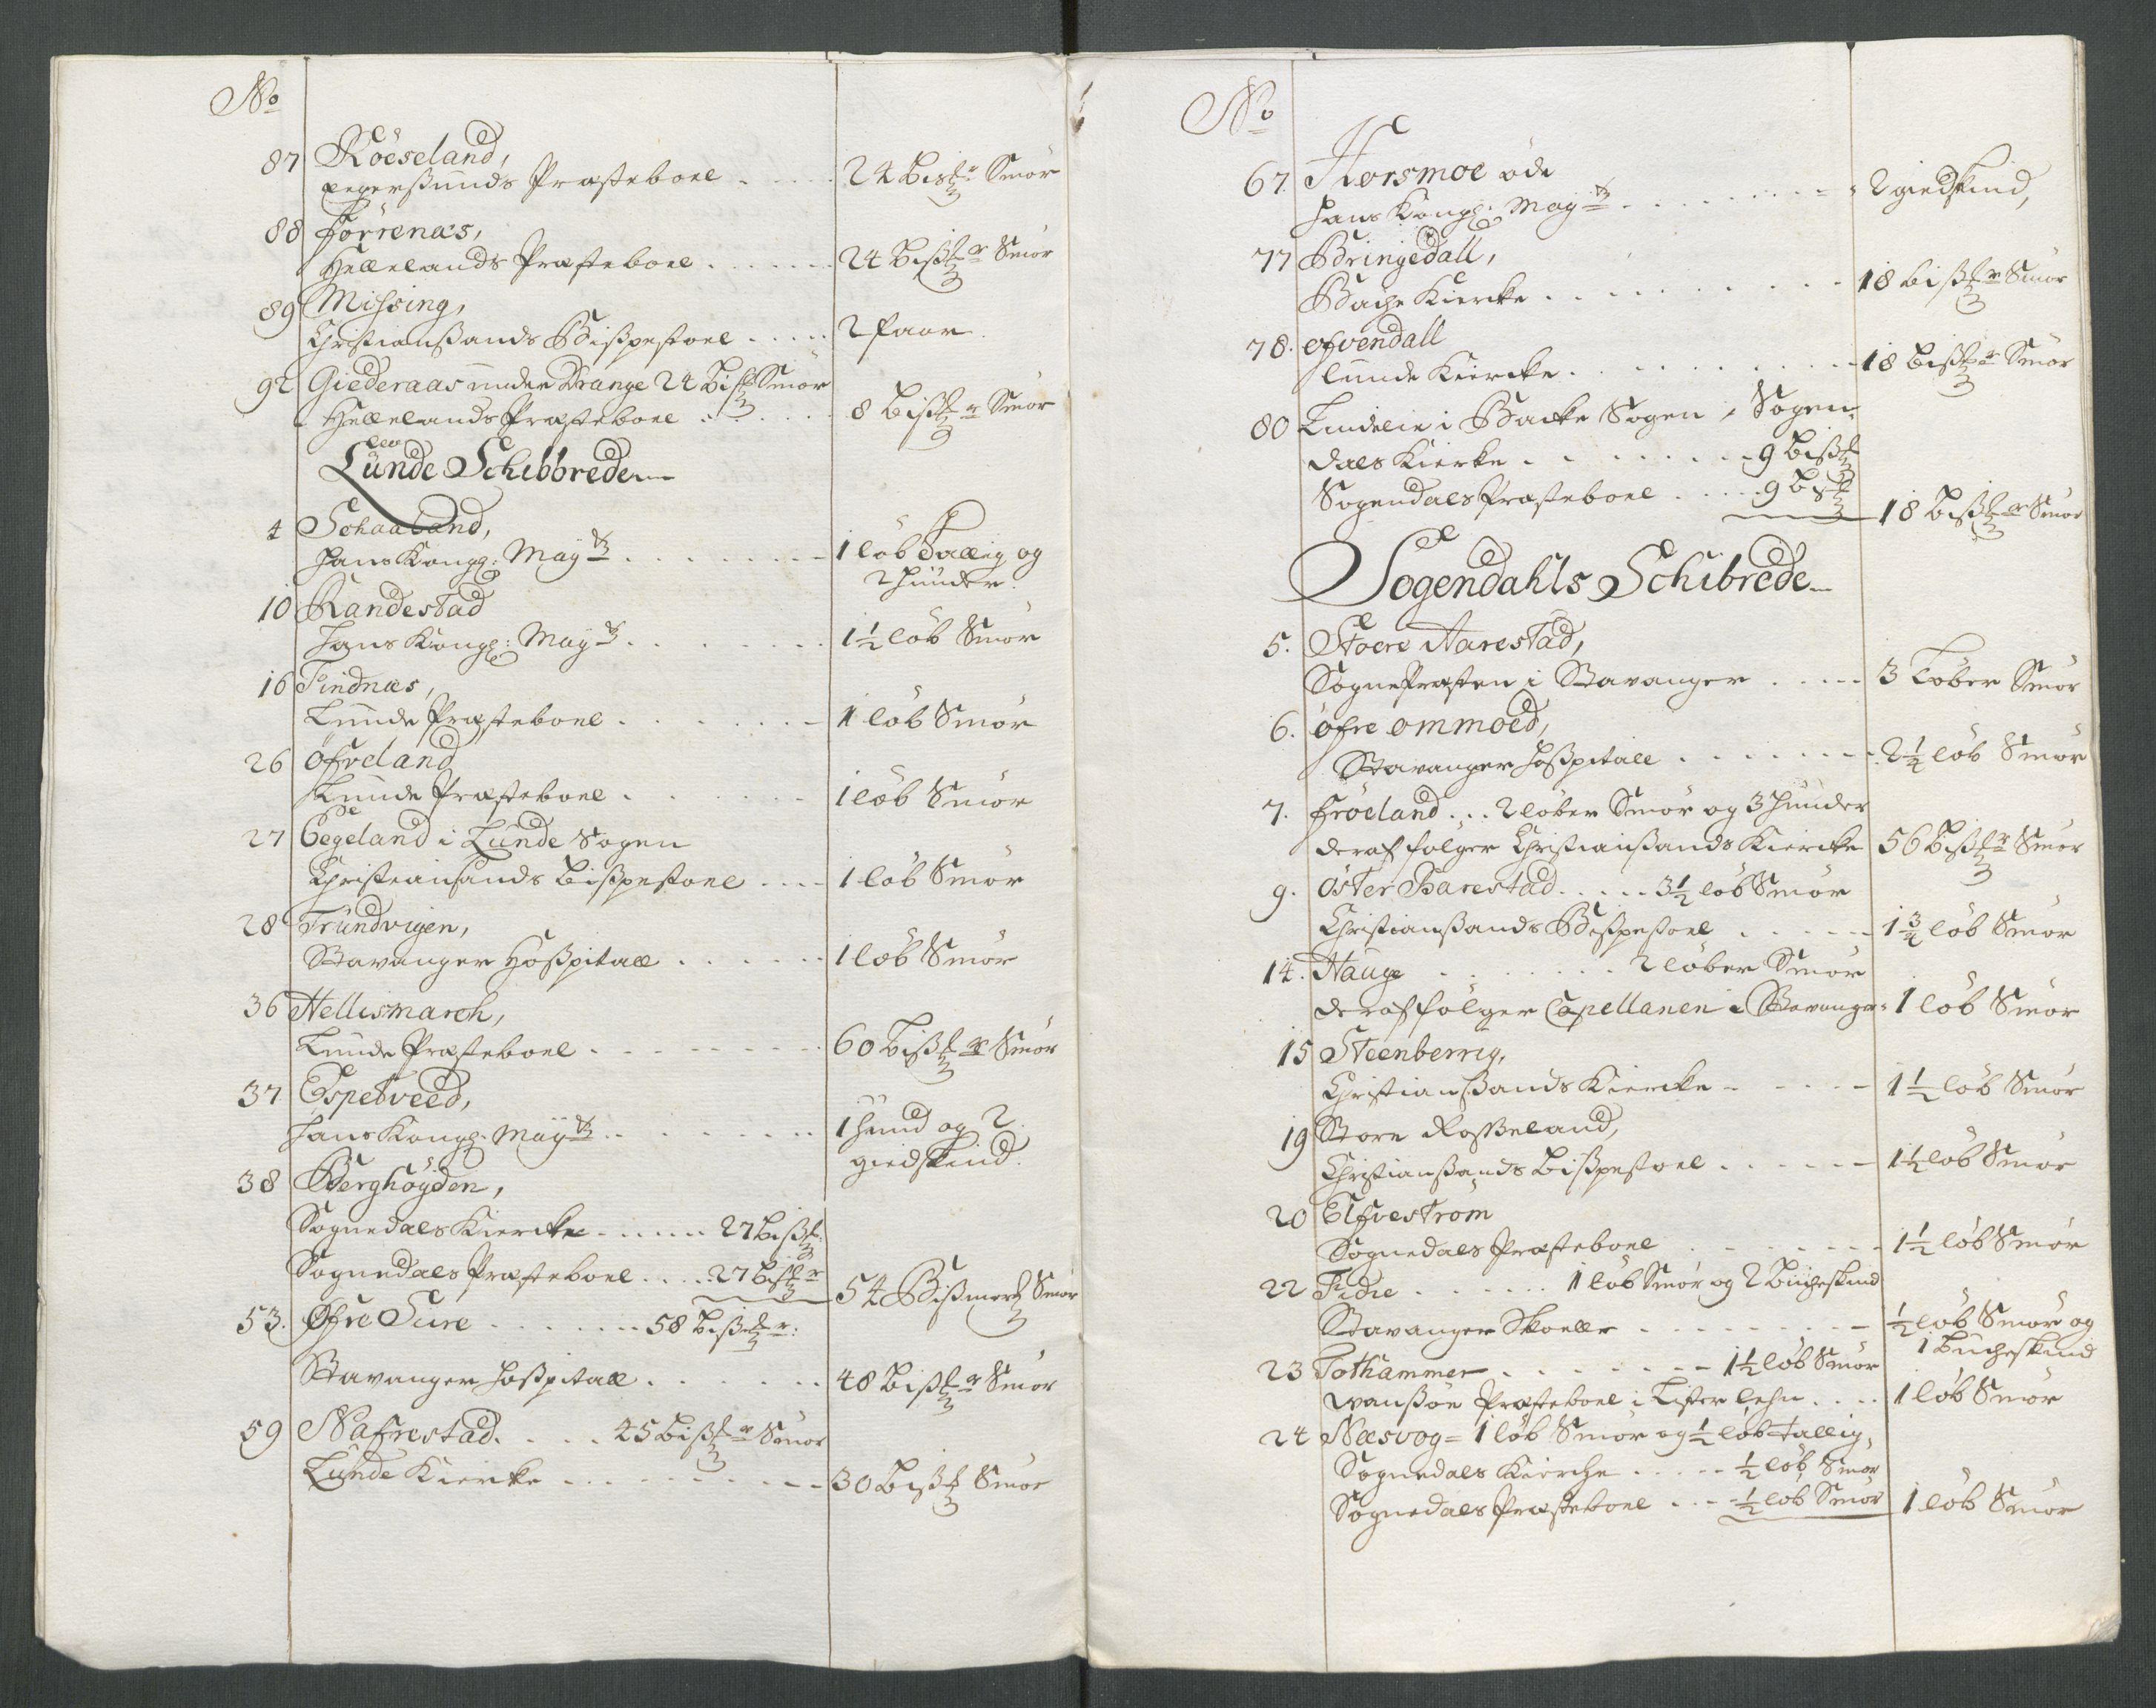 No
87 Röeseland,
Egerssunds Præsteboel . . . . 24 Bis℔r Smör
88 Förrenæs,
Hellelands Præsteboel . . . . . . 24 Biss℔r Smör
89 Missing,
Christianssands Bisspestoel . . . . . 2 faar
92 Giederaas under Drange 24 Bis℔ Smör
Hellelands Præsteboel . . . . . 8 Biss℔r Smör
Lunde Schibbrede
4 Schaaland,
Hans Kongl: Mayts . . . . . . . 1 löb Tallig og
2 huuder.
10 Randestad
Hans Kongl: Mayts . . . . . . . 1½ löb Smör
16 Tindnæs,
Lunde Præsteboel . . . . . . . 1 löb Smör
26 Öfreland
Lunde Præsteboel . . . . . . 1 löb Smör
27 Eegeland i Lunde Sogen
Christiansands Bisspestoel . . . . 1 löb Smör
28 Trundvigen,
Stavanger Hosspitall . . . . . . 1 löb Smör
36 Hellismarch,
Lunde Præsteboel . . . . . . . . 60 Biss℔r Smör
37 Espetveed,
Hans Kongl: Mayts . . . . . . . 1 huud og 2
giedskind.
38 Berghöyden,
Sognedals Kiercke . . . . . . 27 Biss℔:
Sognedals Præsteboel . . . . 27 Bis℔r
54 Bissmer℔ Smör
53. Øfre Sure . . . . . . . 58 Biss℔r:
Stavanger Hosspitall . . . . . . 48 Biss℔r Smör
59 Nafrestad. . . . . 45 Biss℔r Smör
Lunde Kiercke . . . . . . . . . 30 Biss℔ Smör
No
67. Horsmoe öde
Hans Kongl: Mayts . . . . . . . . . 2 giedskind,
77 Bringedall,
Bache Kiercke . . . . . . . . . . 18 biss℔r Smör
78. Efvendall
Lunde Kiercke . . . . . . . . . . 18 Biss℔r Smör
80 Lindelie i Backe Sogen, Sogen-
dals Kierke . . . . . . . . 9 Biss℔
Sogendals Præsteboel . . . . . 9 Bis℔
18 Biss℔r Smör
Sogendahls Schibrede
5. Stoere Aarestad,
Sognepræsten i Stavanger . . . . . 3 Löber Smör
6. Öfre Ommoed,
Stavanger Hosspitall . . . . . . . . 2½ löb Smör
7. Fröeland . . . 2 löber Smör og 3 huuder
deraf fölger Christianssands Kiercke 56 Biss℔r Smör
9. Öster Barestad . . . . . 3½ löb Smör
Christianssands Bisspestoel . . . . . . 1¾ löb Smör
14. Hauge . . . . . . . . 2 löber Smör
deraf fölger Capellanen i Stavanger 1 löb Smör
15 Steenberrig,
Christianssands Kiercke . . . . . 1½ löb Smör
19 Store Rosseland,
Christianssands Bisspestoel . . . . . . 1½ löb Smör
20 Elfvestrøm
Sognedals Præsteboel . . . . . . . . 1½ löb Smör
22 Fidie . . . . . . . 1 löb Smör og 2 Bucheskind
Stavanger Skoelle . . . . . . . . . ½ löb Smör og
1 Bucheskind
23 Tothammer . . . . . . . . 1½ löb Smör
Wanssöe Præsteboel i Lister lehn . . . . 1 löb Smör
24 Næsvog = 1 löb Smör og ½ löb Tallig,
Sognedals Kierche . . . . . ½ löb Smör
Sognedals Præsteboel . . . . ½ löb Smör
1 löb Smör